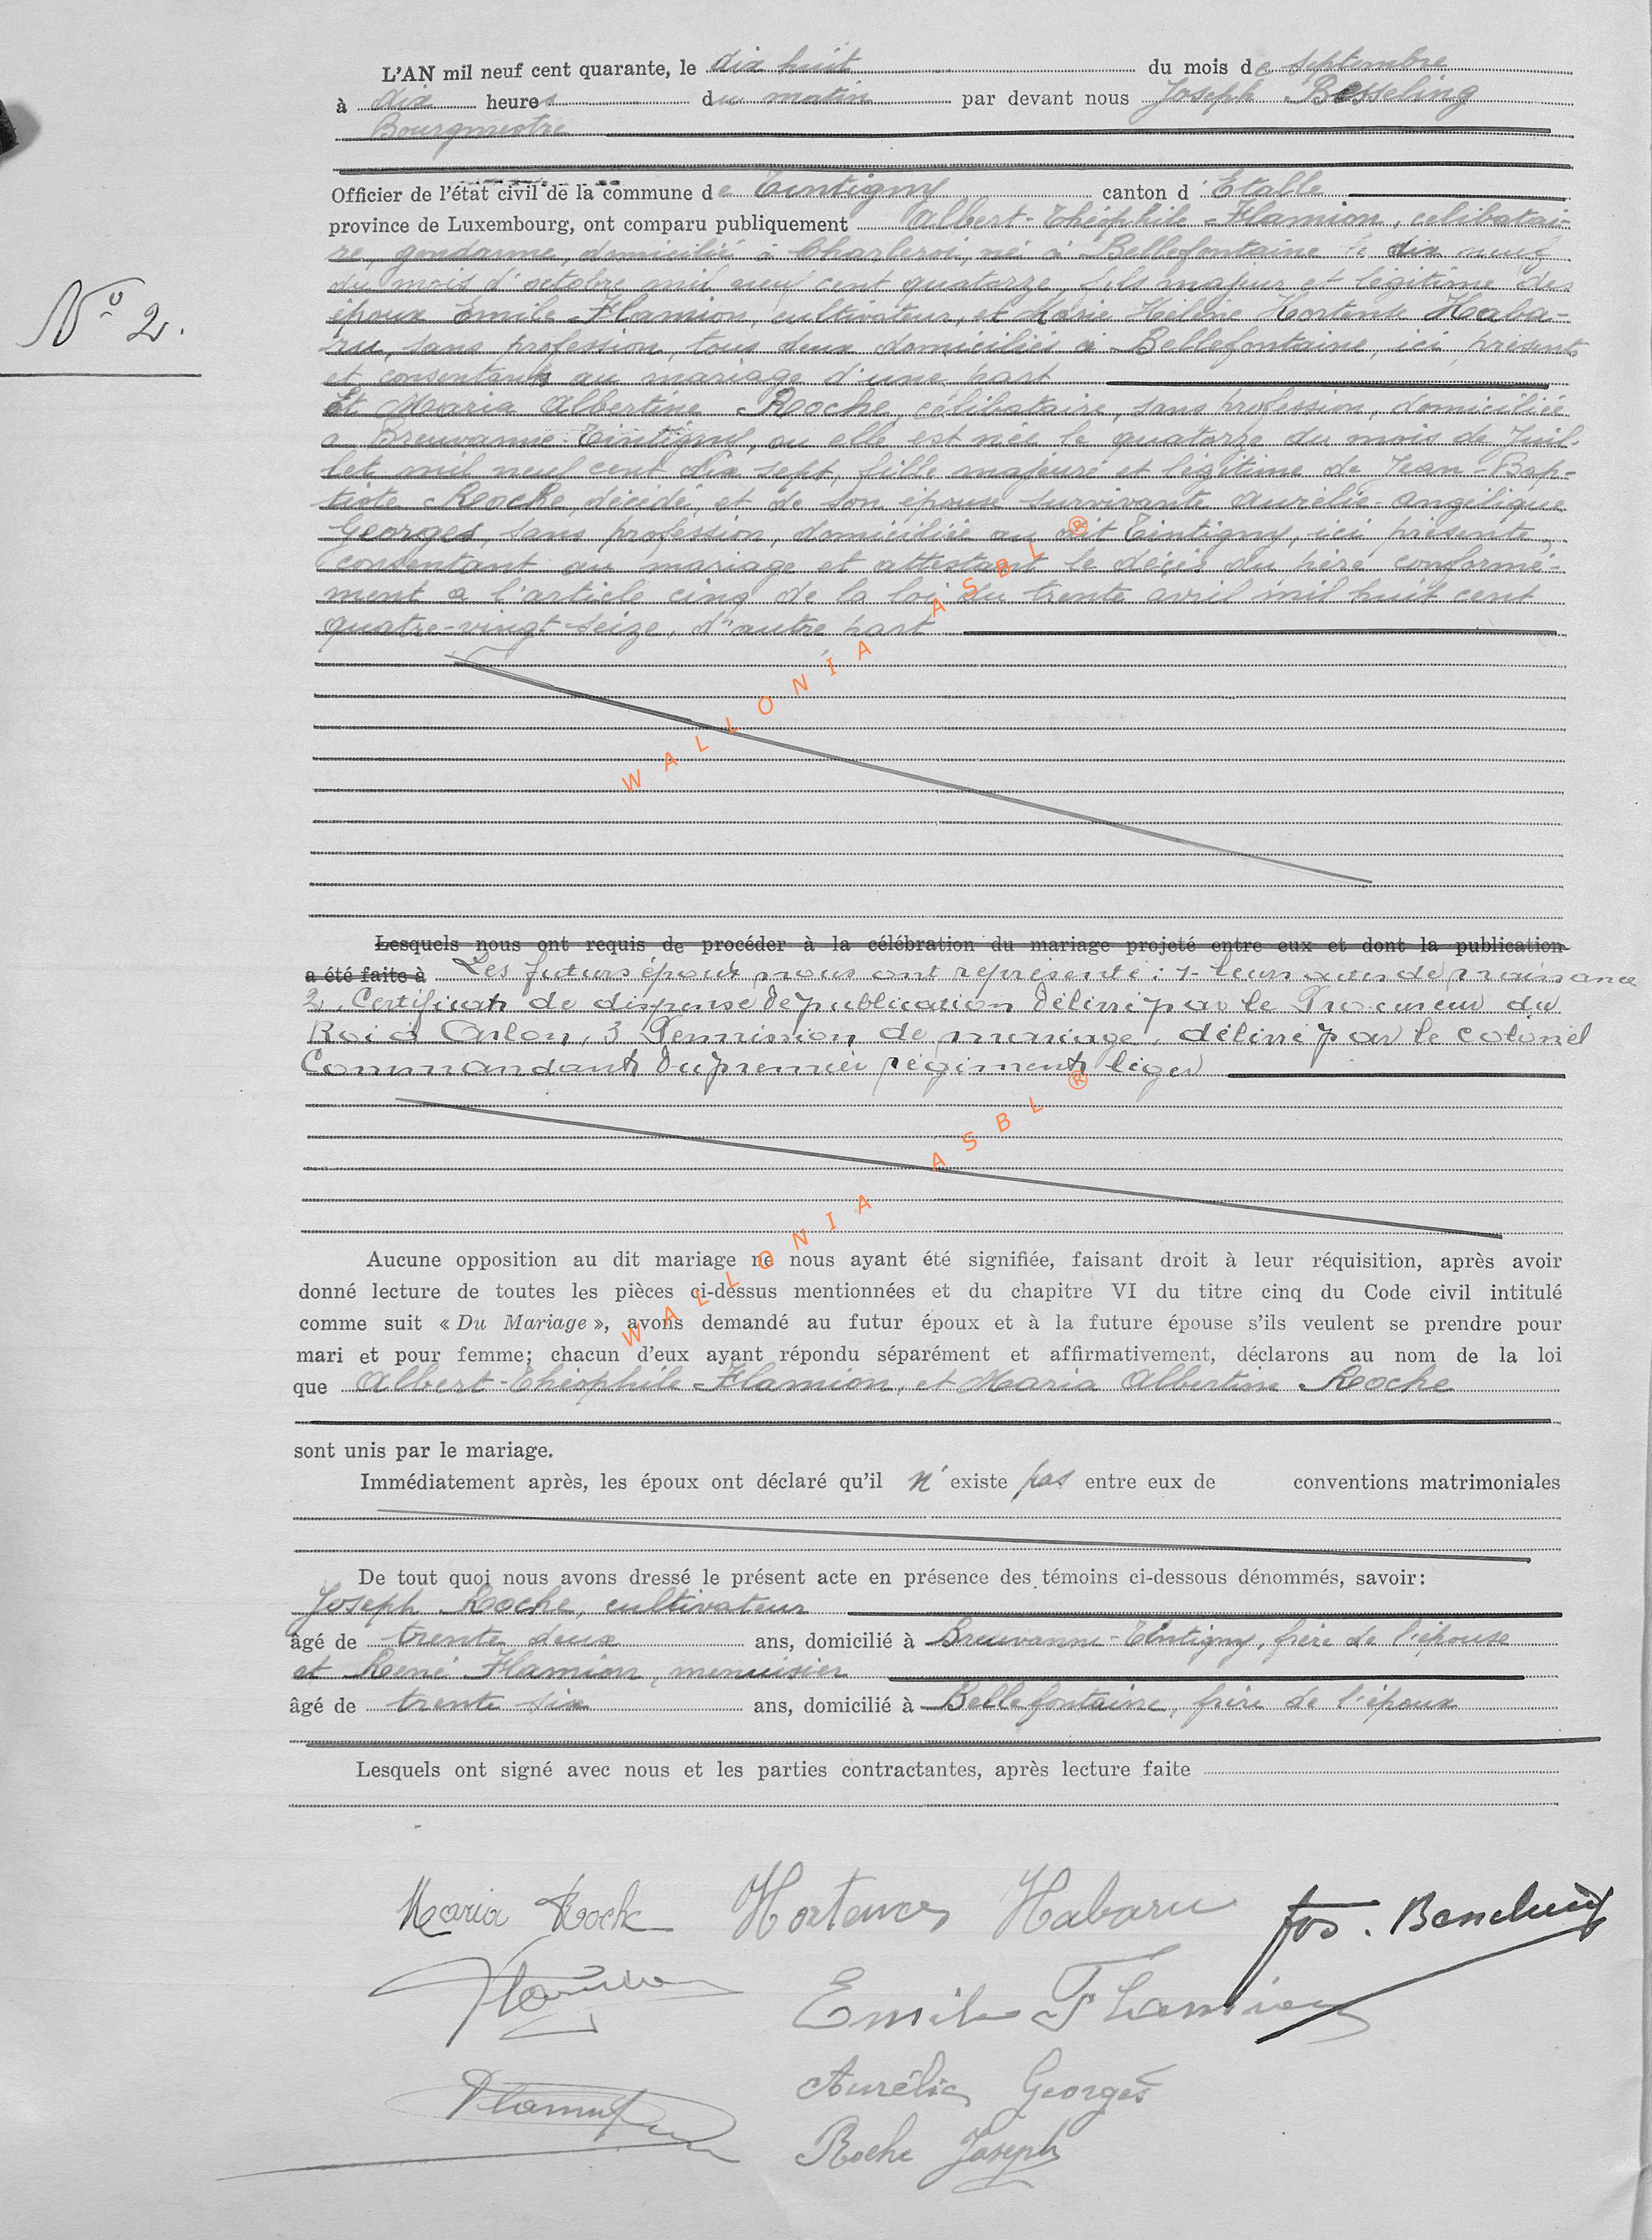 L'AN mil neuf cent quarante, le dix huit du mois de septembre
à dix heures du matin par devant nous Joseph Besseling
Bourgmestre
Officier de l'état civil de la commune de Tintigny canton d'Etalle
province de Luxembourg, ont comparu publiquement Albert-Théophile Flamion, célibatai-
re, gendarme, domicilié à Charleroi, né à Bellefontaine le dix neuf
du mois d'octobre mil neuf cent quatorze, fils majeur et légitime des
époux Emile Flamion, cultivateur, et Marie Hélène Hortense Haba-
ru, sans profession, tous deux domiciliés à Bellefontaine, ici présents
et consentants au mariage d'une part
Et Maria Albertine Roche, célibataire, sans profession, domiciliée
à Breuvanne-Tintigny, où elle est née le quatorze du mois de Juil-
let mil neuf cent dix sept, fille majeure et légitime de Jean-Bap-
tiste Roche, décédé, et de son épouse survivante Aurélie-Angélique
Georges, sans profession, domiciliée au dit Tintigny, ici présente,
consentant au mariage et attestant le décès du père conformé-
ment à l'article cinq de la loi du trente avril mil huit cent
quatre-vingt seize, d'autre part
WALLONIA ASBL ®
Lesquels nous ont requis de procéder à la célébration du mariage projeté entre eux et dont la publication
a été faite à Les futurs époux nous ont représenté : 1- leurs actes de naissance
2. Certificat de dispense de publication délivré par le Procureur du
Roi à Arlon, 3 Permission de mariage, délivré par le colonel
Commandant du premier régiment léger
WALLONIA ASBL ®
Aucune opposition au dit mariage ne nous ayant été signifiée, faisant droit à leur réquisition, après avoir
donné lecture de toutes les pièces ci-dessus mentionnées et du chapitre VI du titre cinq du Code civil intitulé
comme suit « Du Mariage », avons demandé au futur époux et à la future épouse s'ils veulent se prendre pour
mari et pour femme; chacun d'eux ayant répondu séparément et affirmativement, déclarons au nom de la loi
que Albert-Théophile Flamion, et Maria Albertine Roche
sont unis par le mariage.
Immédiatement après, les époux ont déclaré qu'il n'existe pas entre eux de conventions matrimoniales
De tout quoi nous avons dressé le présent acte en présence des témoins ci-dessous dénommés, savoir:
Joseph Roche, cultivateur
âgé de trente deux ans, domicilié à Breuvanne-Tintigny, frère de l'épouse
et René Flamion, menuisier
âgé de trente six ans, domicilié à Bellefontaine, frère de l'époux
Lesquels ont signé avec nous et les parties contractantes, après lecture faite
N° 2.
Maria Roche Hortence Habaru Jos.
Flamion Emile Flamion
Aurélie Georges
Roche Joseph